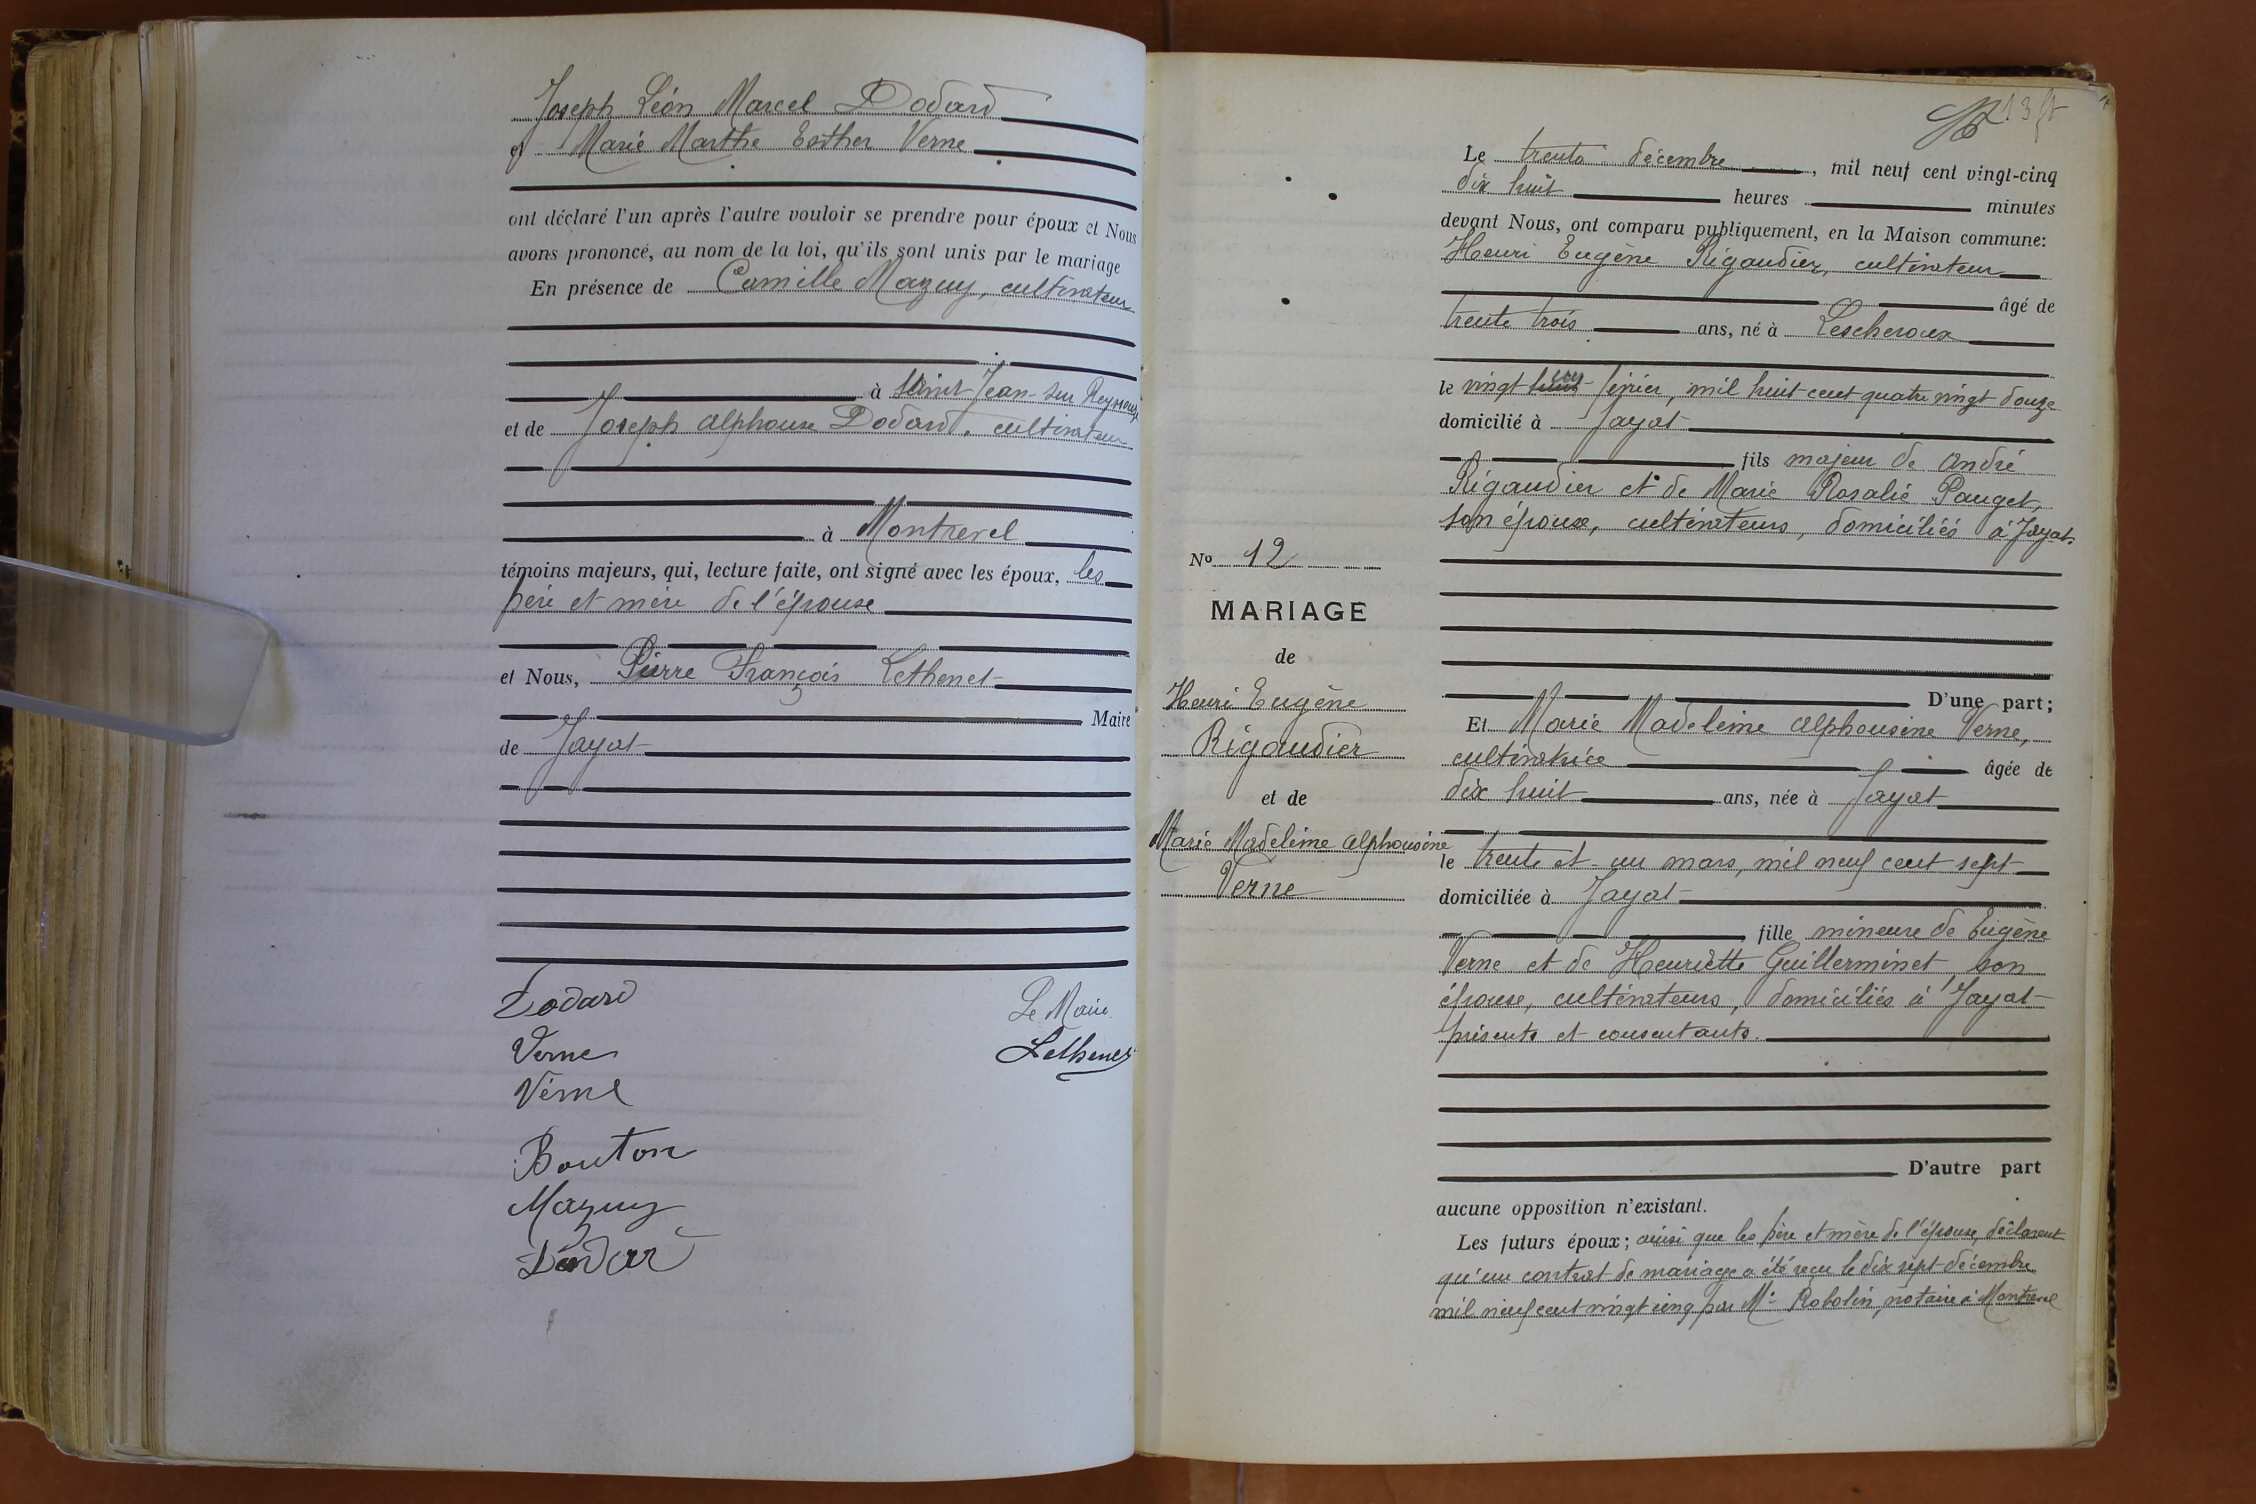 Joseph Léon Marcel Dodard
et Marie Marthe Esther Verne
ont déclaré l'un après l'autre vouloir se prendre pour époux et Nous
avons prononcé, au nom de la loi, qu'ils sont unis par le mariage
En présence de Camille Mazuy, cultivateur
à Saint-Jean-sur Reyssouze
et de Joseph Alphonse Dodard, cultivateur
à Montrevel
témoins majeurs, qui, lecture faite, ont signé avec les époux, les
père et mère de l'épouse
et Nous, Pierre François Lethenet
Maire
de Jayat
Dodard
Le Maire
Verne
Lethenet
Verne
Bouton
Mazuy
Dodard
Le trente décembre, mil neuf cent vingt-cinq
dix huit heures minutes
devant Nous, ont comparu publiquement, en la Maison commune:
Henri Eugène Rigaudier, cultivateur
âgé de
trente trois ans, né à Lescheroux
le vingt février, mil huit cent quatre vingt douze
domicilié à Jayat
fils majeur de André
Rigaudier et de Marie Rosalie Pauget,
son épouse, cultivateurs, domiciliés à Jayat.
D'une part;
No 12
MARIAGE
de
Henri Eugène
Rigaudier
et de
Marie Madeleine Alphonsine
Verne
Et Marie Madeleine Alphonsine Verne,
cultivatrice âgée de
dix huit ans, née à Jayat
le trente et un mars, mil neuf cent sept
domiciliée à Jayat
fille mineure de Eugène
Verne et de Henriette Guillerminet, son
épouse, cultivateurs, domiciliés à Jayat
présents et consentants.
D'autre part
aucune opposition n'existant.
Les futurs époux; ainsi que les père et mère de l'épouse, déclarent
qu'un contrat de mariage a été reçu le dix sept décembre
mil neuf cent vingt cinq par Me Robolin, notaire à Montrevel